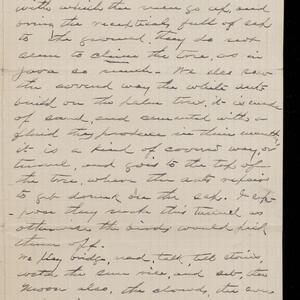 with which the men go up, and
bring the receptacle full of sap
to the ground, they do not
seem to climb the tree, as in
Java so much. We also saw
the covered way the white ants
build on the palm tree. it is made
of sand, and cemented with a
fluid they produce in their mouth,
it is a kind of covered way, or
tunnel, and goes to the top of
the tree, where the ants repair
to get drunk on the sap. I sup-
-pose they make this tunnel as
otherwise the birds would pick
them off.
We play bridge, read, talk, tell stories,
watch the sun rise, and set, the
moon also, the clouds, the